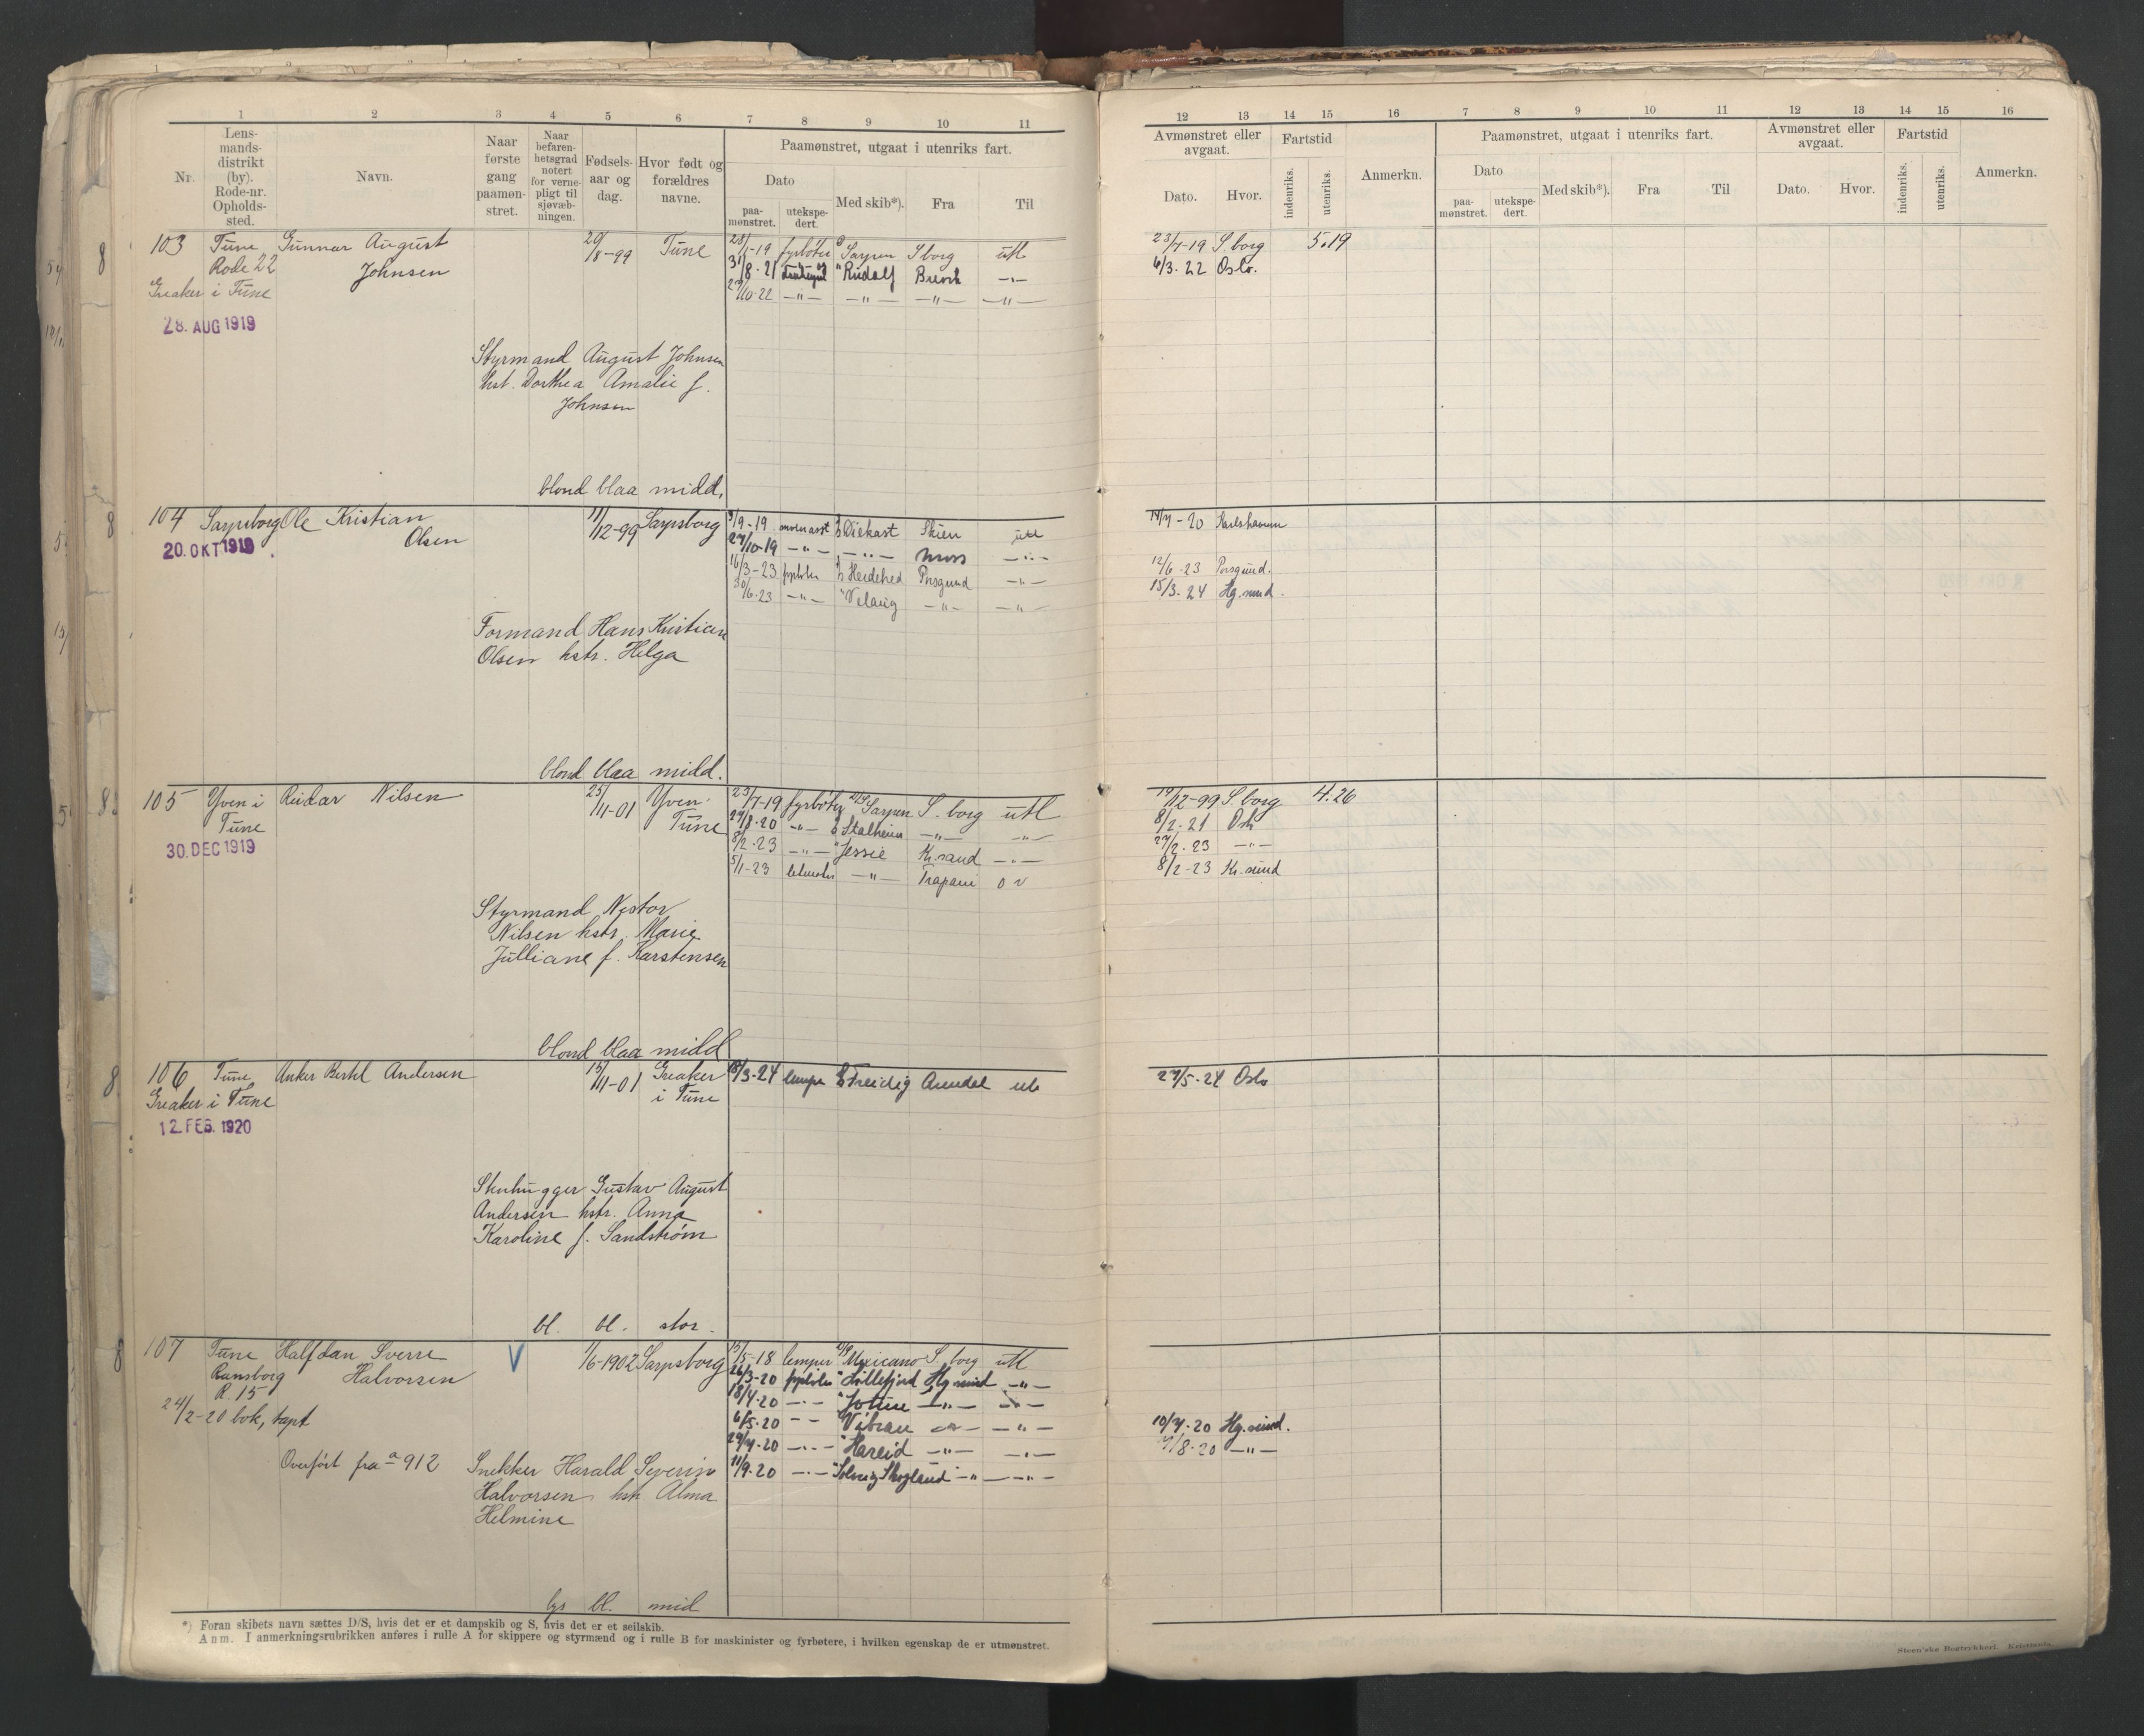 1 2 3 4 5 6 7 8 9 10 11
Nr.
Lens-
mands-
distrikt
(by).
Rode-nr.
Opholds-
sted.
Navn.
Naar
første
gang
paamøn-
stret.
Naar
befaren-
hetsgrad
notert
for verne-
pligt til
sjøvæb-
ningen.
Fødsels-
aar og
dag.
Hvor født og
forældres
navne.
Paamønstret, utgaat i utenriks fart.
Dato
paa-
mønstret.
utekspe-
dert.
Med skib*).
Fra
Til
12 13 14 15 16 7 8 9 10 11 12 13 14 15 16
Avmønstret eller
avgaat.
Dato.
Hvor.
Fartstid
indenriks.
utenriks.
Anmerkn.
Paamønstret, utgaat i utenriks fart.
Dato
paa-
mønstret.
utekspe-
dert.
Med skib*).
Fra
Til
Avmønstret eller
avgaat.
Dato.
Hvor.
Fartstid
indenriks.
utenriks.
Anmerkn.
103 Tune Gunnar August 29/8-99 Tune
Rode 22 Johnsen
Greaker i Tune
28. AUG 1919
fyrbøter Sarpen S borg utl
31/8-21 "Rudolf Brevik -"-
10-22 -"- -"- -"- -"-
23/7-19 S. borg 5.19
6/3.22 Oslo.
Styrmand August Johnsen
hst. Dorthea Amalie f.
Johnsen
blond blaa midd.
104 Sarpsborg Ole Kristian 11/12-99 Sarpsborg
Olsen
20. OKT 1919
9-19 Skien utl
27/10-19 -"- -"- Moss -"-
16/3-23 Heidehed Porsgrund -"-
30/6-23 -"- -"- -"-
14/7-20 Karlshavn
12/6-23 Porsgrund.
15/3.24 Hg.sund.
Formand Hans Kristian
Olsen hstr. Helga
blond blaa midd.
105 Yven i Reidar Nilsen 25/11-01 Yven
Tune Tune
30. DEC 1919
23/7-19 fyrbøter D/S Sarpen S. borg utl
8-20 -"- Stalheim -"- -"-
8/2-23 -"- "Jessie Kr.sand -"-
5/1-23 -"- Trapani
19/12-99 S. borg 4.26
8/2-21
27/2-23 -"-
8/2-23 Kr.sund
Styrmand Nestor
Nilsen hstr. Marie
Julliane f. Karstensen
blond blaa midd
106 Tune Anker Bertil Andersen 15/11-01 Greaker
Greaker i Tune i Tune
12. FEB. 1920
18/3-24 Freidig Arendal utl
27/5-24 Oslo
Stenhugger Gustav August
Andersen hstr. Anna
Karoline f. Sandstrøm
bl. bl. stor.
107 Tune Halfdan Sverre V 1/6-1902 Sarpsborg
Ransborg Halvorsen
R. 15
24/2-20 bok, tapt
Overført fra a 912
15/5-18 lemper D/S Mexicano S. borg utl
26/3-20 "Hillefjord Hg sund -"-
18/4-20 -"- "Jotun -"- -"-
6/5-20 -"- "Vibran -"- -"-
29/7-20 -"- "Hareid -"- -"-
11/9-20 -"- "Solveig Skogland -"- -"-
10/7-20 Hg.sund.
7/8-20 -"-
Snekker Harald Severin
Halvorsen hstr Alma
Helmine
lys bl. mid
*) Foran skibets navn sættes D/S, hvis det er et dampskib og S, hvis det er et seilskib.
Anm. I anmerkningsrubrikken anføres i rulle A for skippere og styrmænd og i rulle B for maskinister og fyrbøtere, i hvilken egenskap de er utmønstret.
Steen'ske Bogtrykkeri. Kristiania.